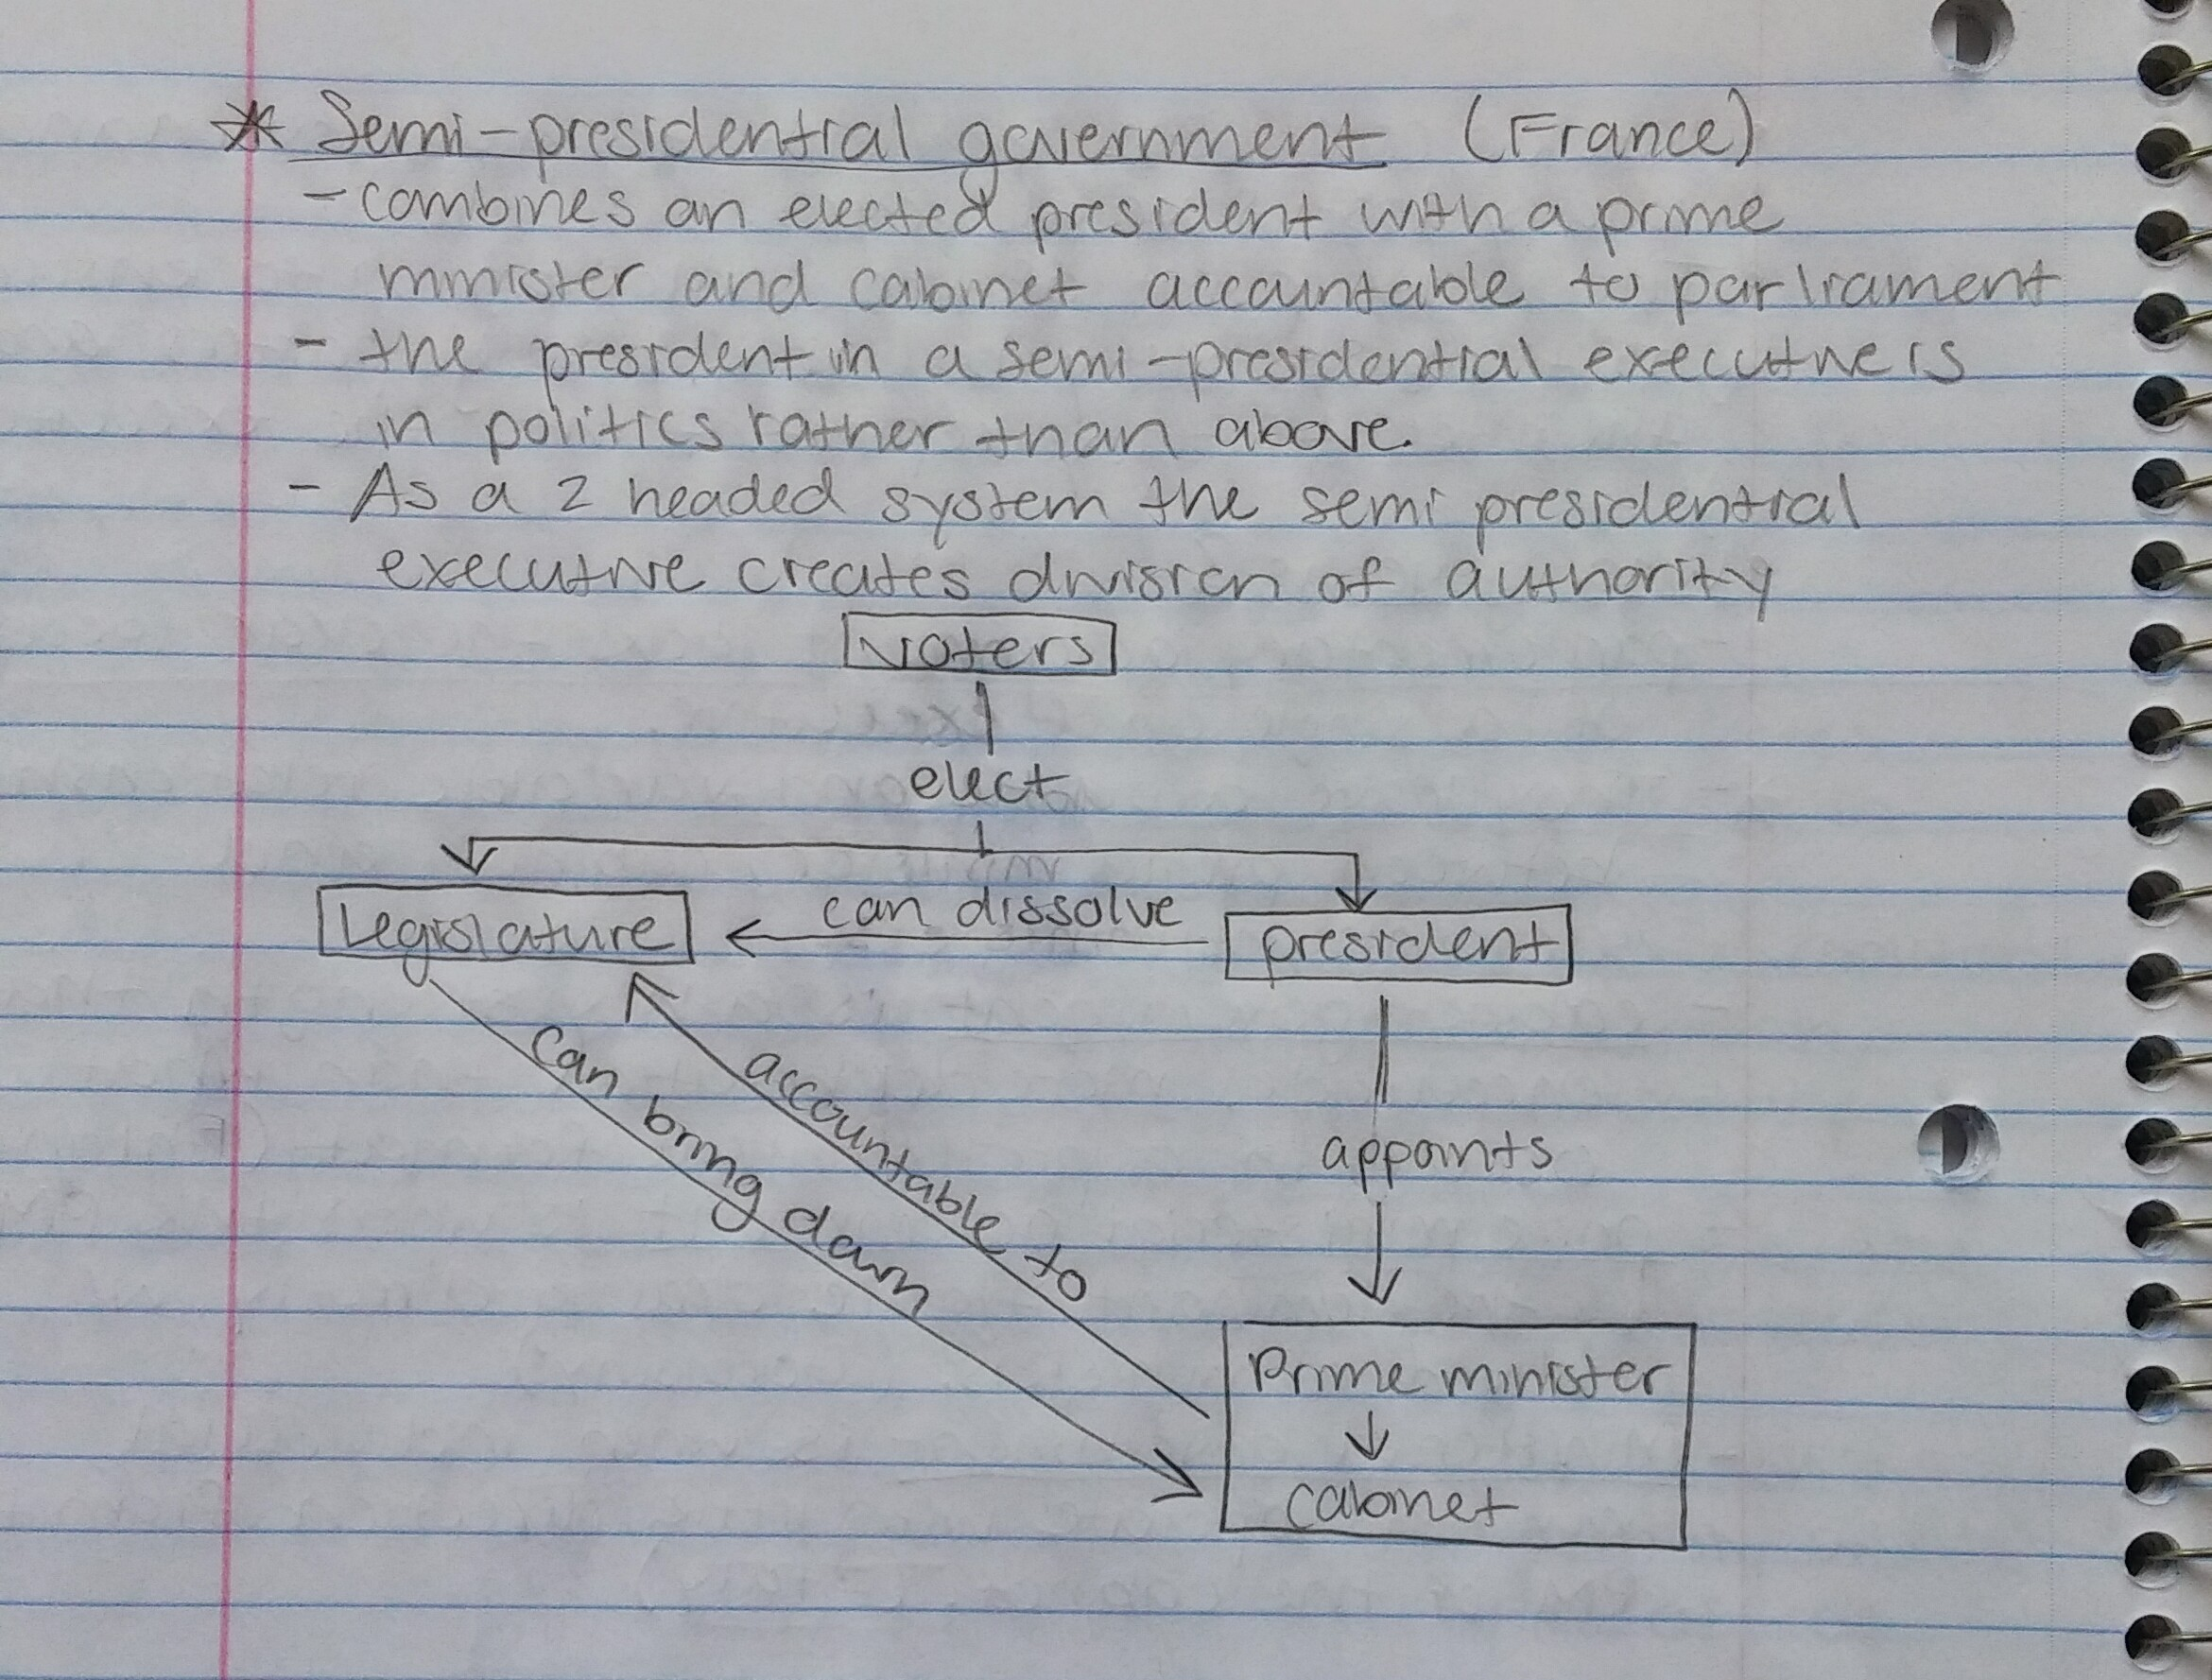 * Semi-presidential government (France)
- combines an elected president with a prime
minister and cabinet accountable to parliament
- the president in a semi-presidential executive is
in politics rather than above.
- As a 2 headed system the semi presidential
executive creates division of authority
voters
elect
can dissolve
Legislature
president
can bring down
accountable to
appoints
Prime minister
↓
cabinet